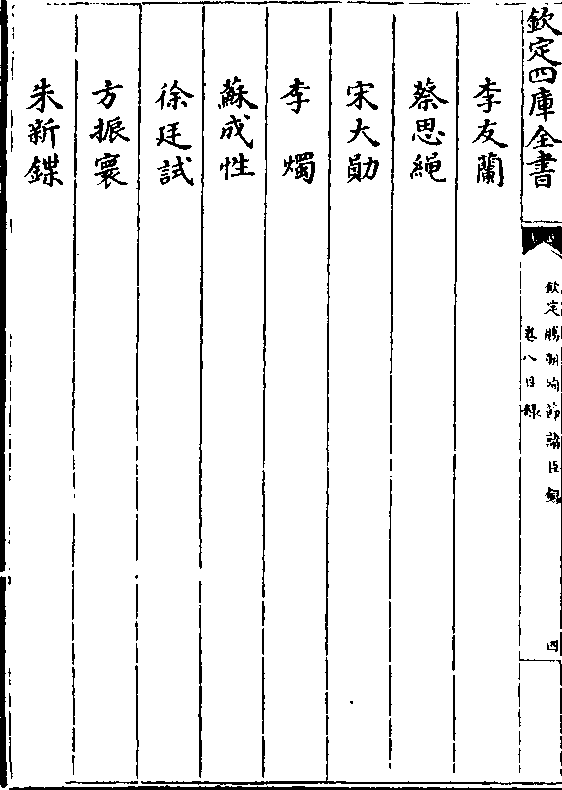 欽定四庫全書
欽定勝朝殉節諸臣録
卷八目録
四
李友蘭
蔡思繩
宋大勛
李　燭
蘇成性
徐廷試
方振寰
朱新鍱